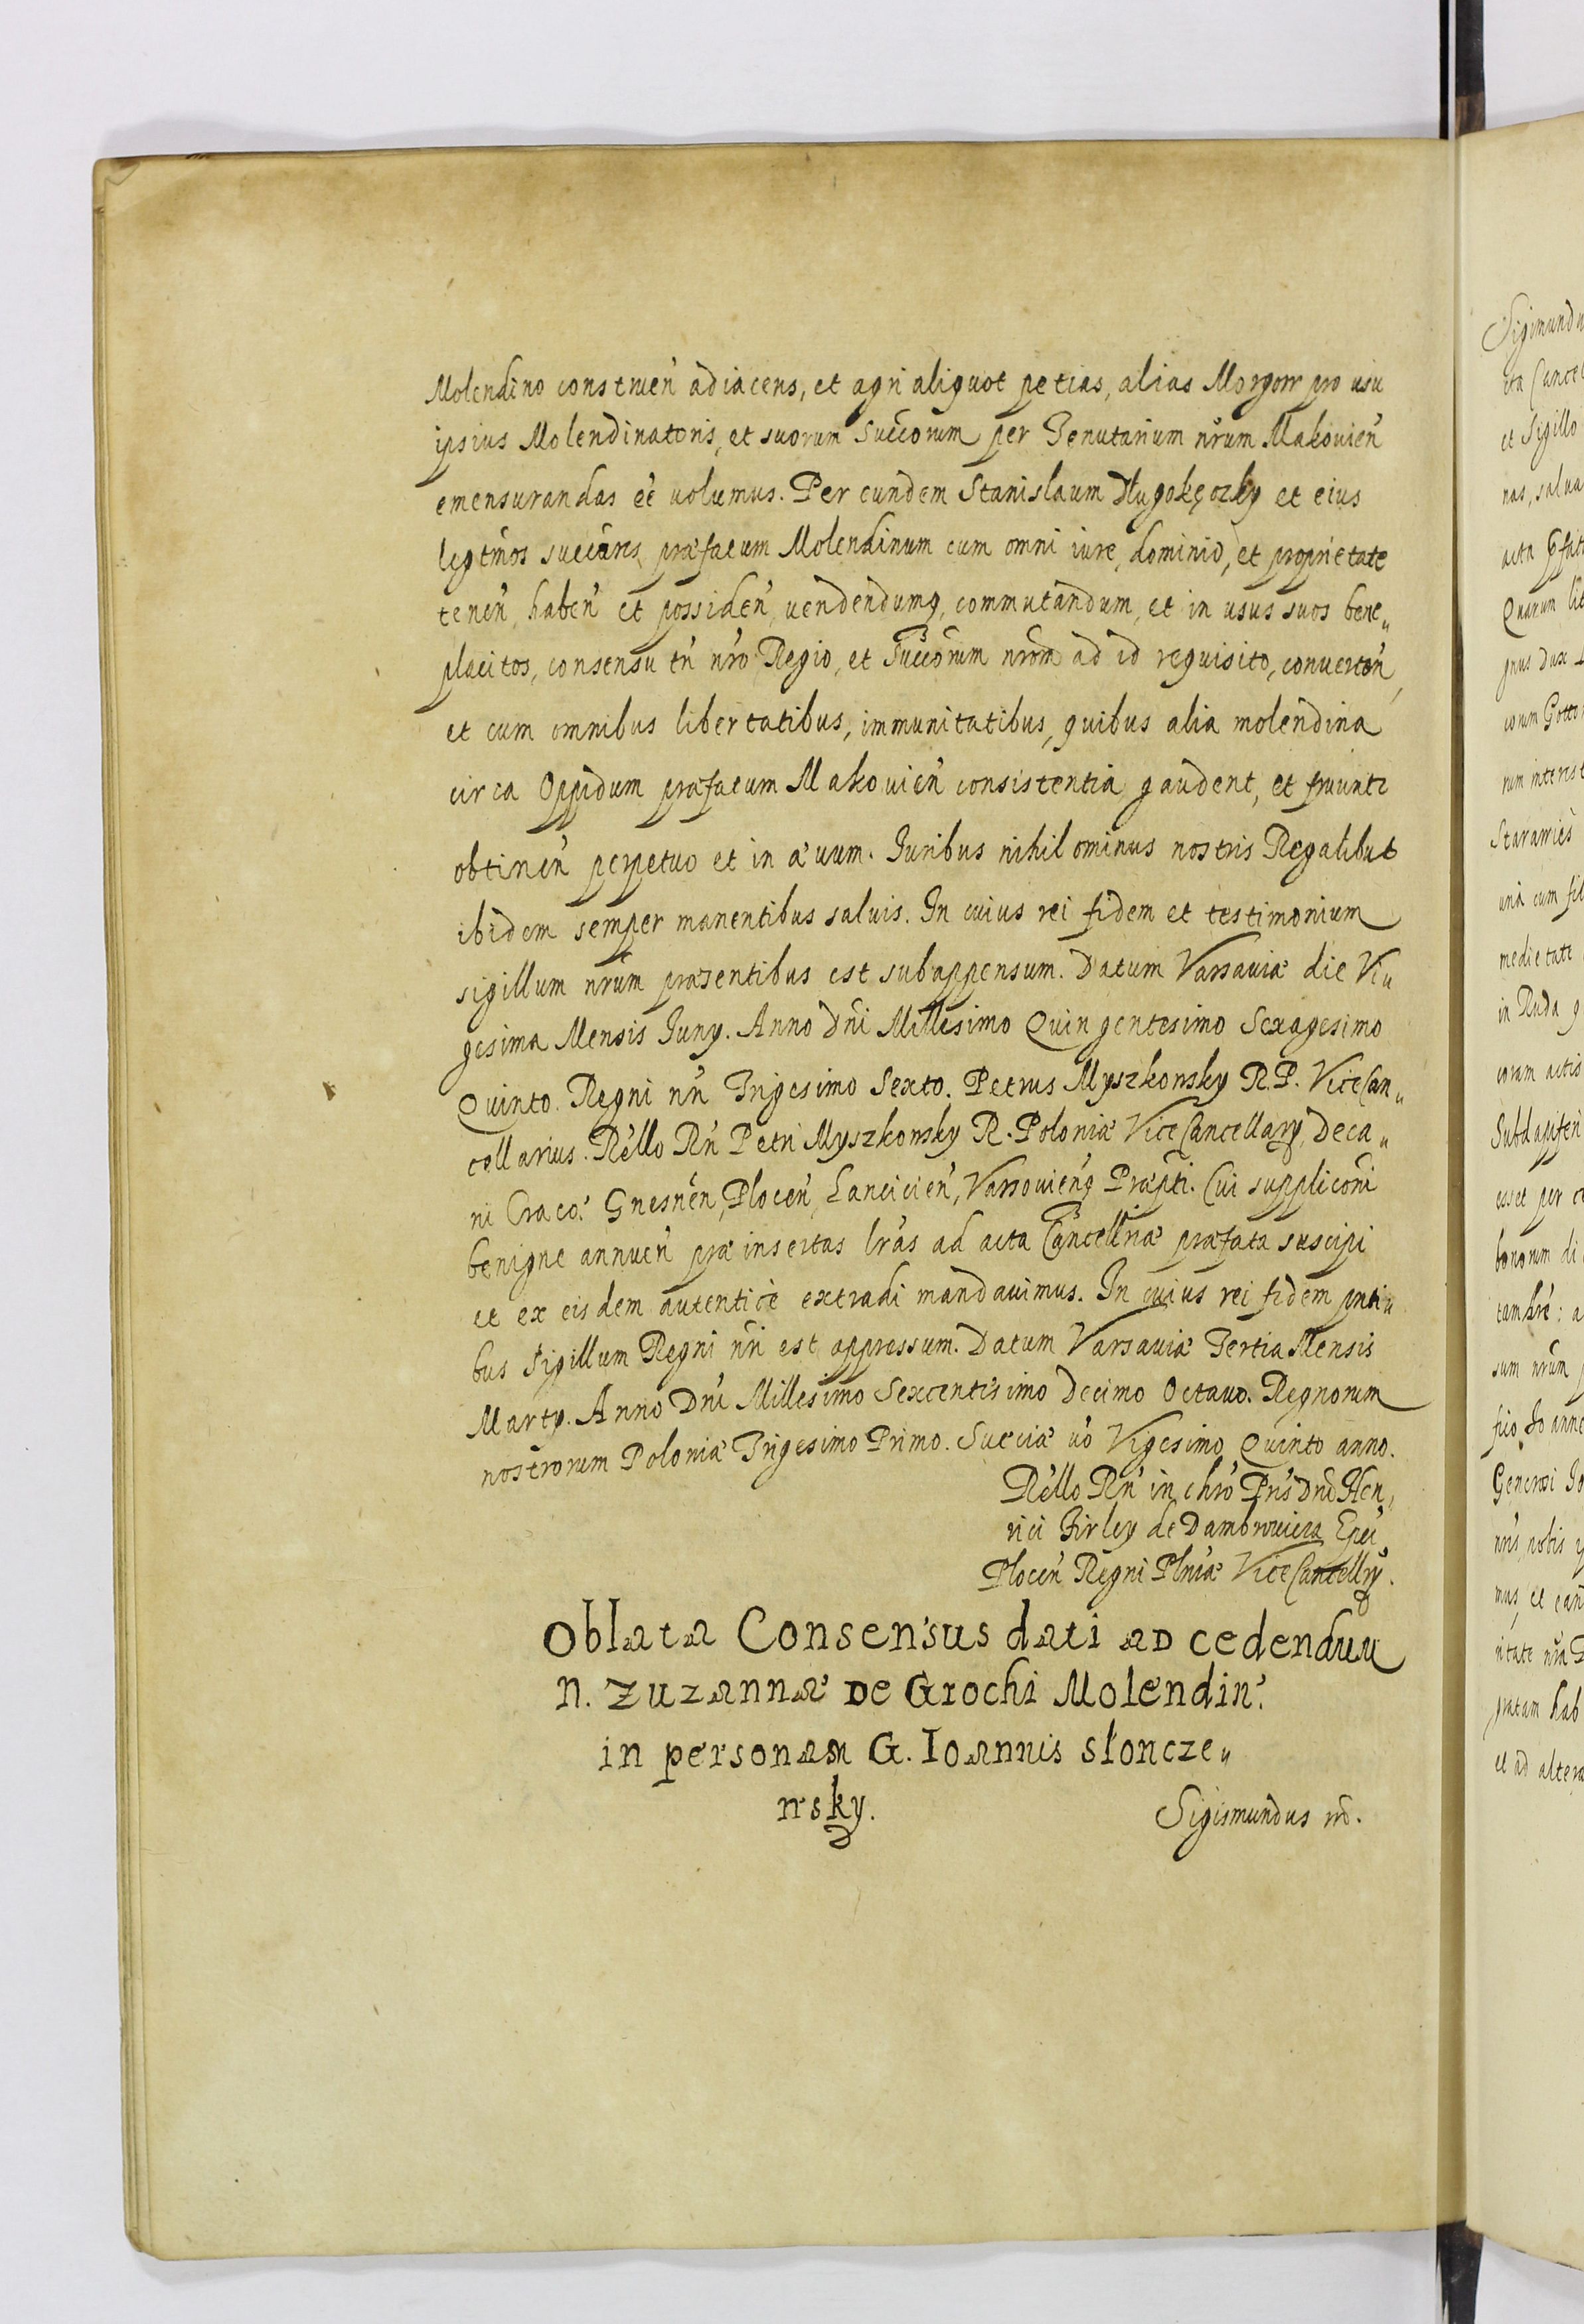 Molendino construen̄ adiacens, et agri aliquot petias, alias Morgow pro usu
ipsius Molendinatoris, et suorum Succorum per Tenutarium nr̄um Makouien̄
emensurandas eē uolumus. Per eundem Stanislaum Długokęczky et eius
legtīmos succūres, præfatum Molendinum cum omni iure, dominio, et proprietate
tenen̄, haben̄ et possiden̄, uendendumq, commutandum, et in usus suos bene„
placitos, consensu tn̄ nr̄o Regio, et Succōrum nrōm ad id requisito, conuerten̄,
et cum omnibus libertatibus, immunitatibus, quibus alia molendina
circa Oppidum præfatum Makouien̄ consistentia gaudent, et fruuntr
obtinen̄ perpetuo et in æuum. Iuribus nihilominus nostris Regalibus
ibidem semper manentibus saluis. In cuius rei fidem et testimonium
sigillum nrūm præsentibus est subappensum. Datum Varsauiæ die Vi„
gesima Mensis Iuny. Anno Dn̄i Millesimo Quingentesimo Sexagesimo
Quinto. Regni nr̄i Trigesimo Sexto. Petrus Myszkowsky R. P. ViceCan„
cellarius. Rēllo Rn̄ Petri Myszkowsky R. Poloniæ ViceCancellary, Deca„
ni Craco: Gnesnēn, Plocen̄, Lancicien̄, Varsouien̄q Præpti. Cui supplicōni
benigne annuen̄ præinsertas lrās ad acta Cancellriæ præfata suscipi
et ex eisdem autenticè extradi mandauimus. In cuius rei fidem pnti„
bus Sigillum Regni nr̄i est appressum. Datum Varsauiæ Tertia Mensis
Marty. Anno Dn̄i Millesimo Sexcentisimo Decimo Octauo. Regnorum
nostrorum Poloniæ Trigesimo Primo. Sueciæ uō Vigesimo Quinto anno.
Rēllo Rn̄ in chrō Pris Dnī Hen„
rici Firley de Dambrowica Epēi
Plocen̄ Regni Plniæ ViceCancellry.
Oblata Consensus dati ad cedendum
N. Zuzannæ de Grochi Molendin:
in personam G. Ioannis Słoncze„
wsky.
Sigismundus iii᷃.
Sigimundu